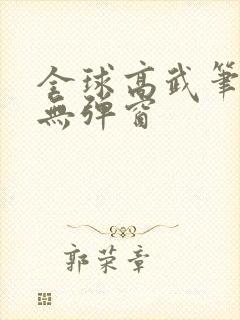 全球高武筆
無彈窗
郭荣章